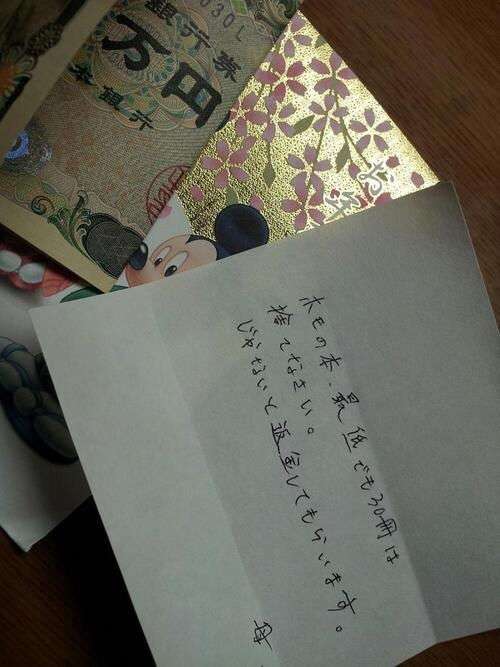 030L
銀行券
万円
本銀行
ホモの本、最低でも30冊は
捨てなさい。
じゃないと返金してもらいます。
母